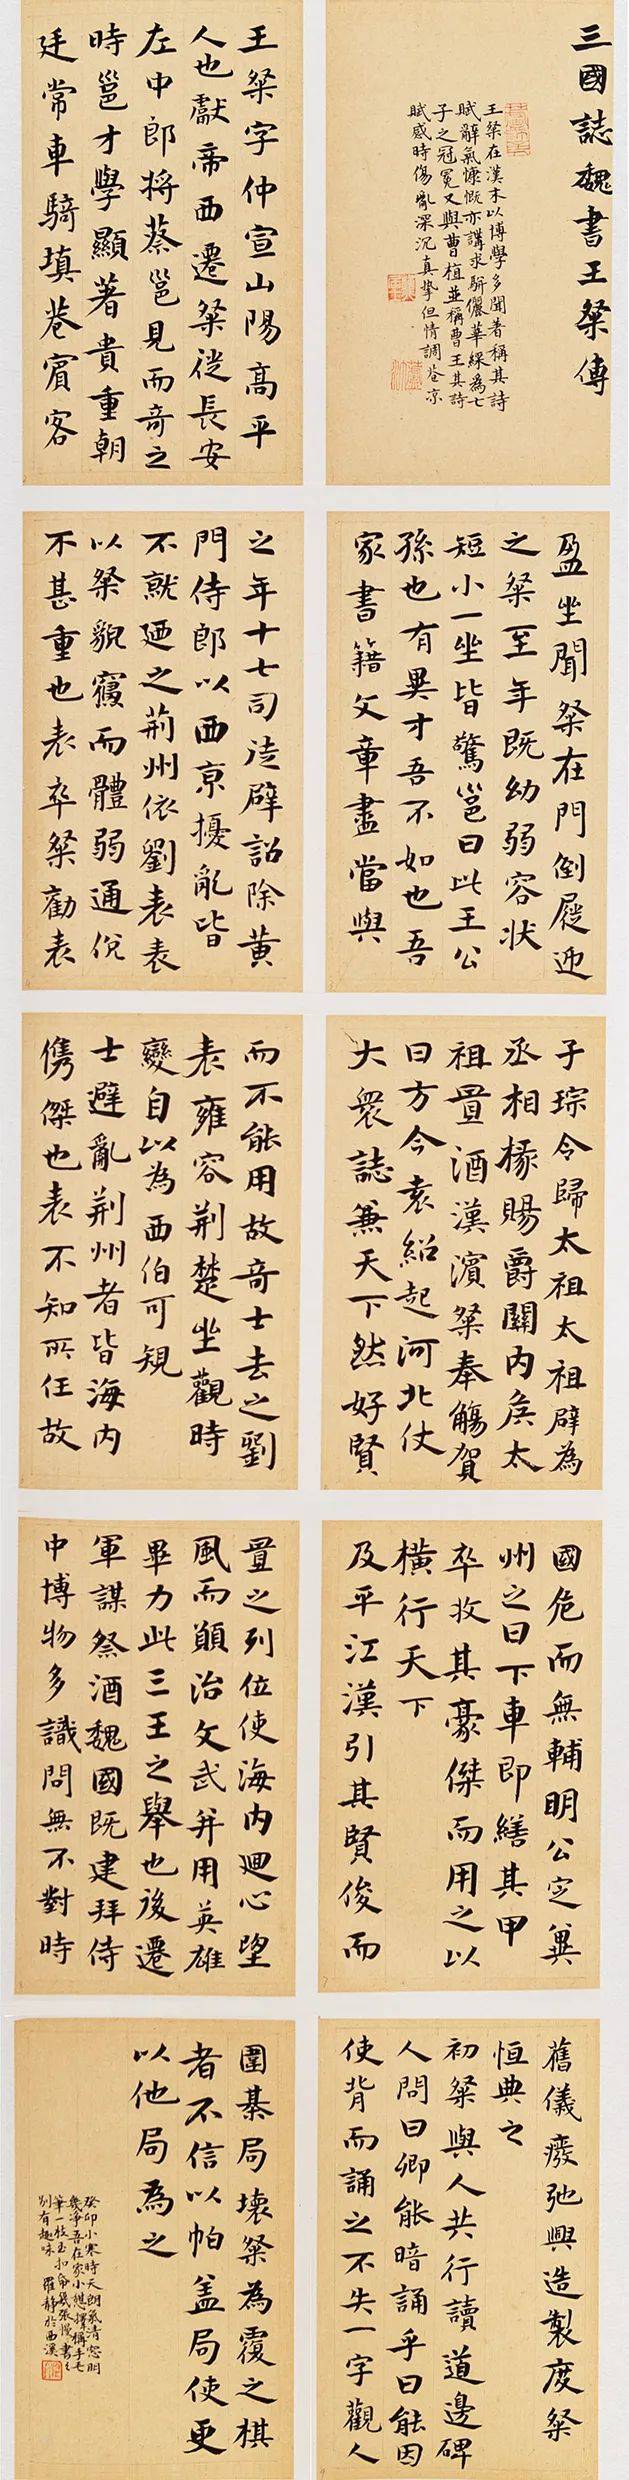 三國誌魏書王粲傳
王粲在漢末以博學多聞著稱其詩
賦辭氣慷慨亦講求駢儷華綵為七
子之冠冕又與曹植並稱曹王其詩
賦感時傷亂深沉真摯但情調蒼涼
王粲字仲宣山陽高平
人也獻帝西遷粲徙長安
左中郎將蔡邕見而奇之
時邕才學顯著貴重朝
廷常車騎填巷賓客
盈坐聞粲在門倒屣迎
之粲至年既幼弱容狀
短小一坐皆驚邕曰此王公
孫也有異才吾不如也吾
家書籍文章盡當與
之年十七司徒辟詔除黃
門侍郎以西京擾亂皆
不就廼之荊州依劉表表
以粲貌寢而體弱通侻
不甚重也表卒粲勸表
子琮令歸太祖太祖辟為
丞相掾賜爵關內侯太
祖置酒漢濱粲奉觴賀
曰方今袁紹起河北仗
大眾誌兼天下然好賢
而不能用故奇士去之劉
表雍容荊楚坐觀時
變自以為西伯可規
士避亂荊州者皆海內
儁傑也表不知所任故
國危而無輔明公定冀
州之日下車即繕其甲
卒收其豪傑而用之以
橫行天下
及平江漢引其賢俊而
置之列位使海內迴心望
風而願治文武并用英雄
畢力此三王之舉也後遷
軍謀祭酒魏國既建拜侍
中博物多識問無不對時
舊儀廢弛興造製度粲
恒典之
初粲與人共行讀道邊碑
人問曰卿能暗誦乎曰能因
使背而誦之不失一字觀人
圍棊局壞粲為覆之棋
者不信以帕蓋局使更
以他局為之
癸卯小寒時天朗氣清窗明
幾淨吾在家小憩擇稱手毛
筆一枝玉扣 幾張慢書之
別有趣味 羅靜於西溪